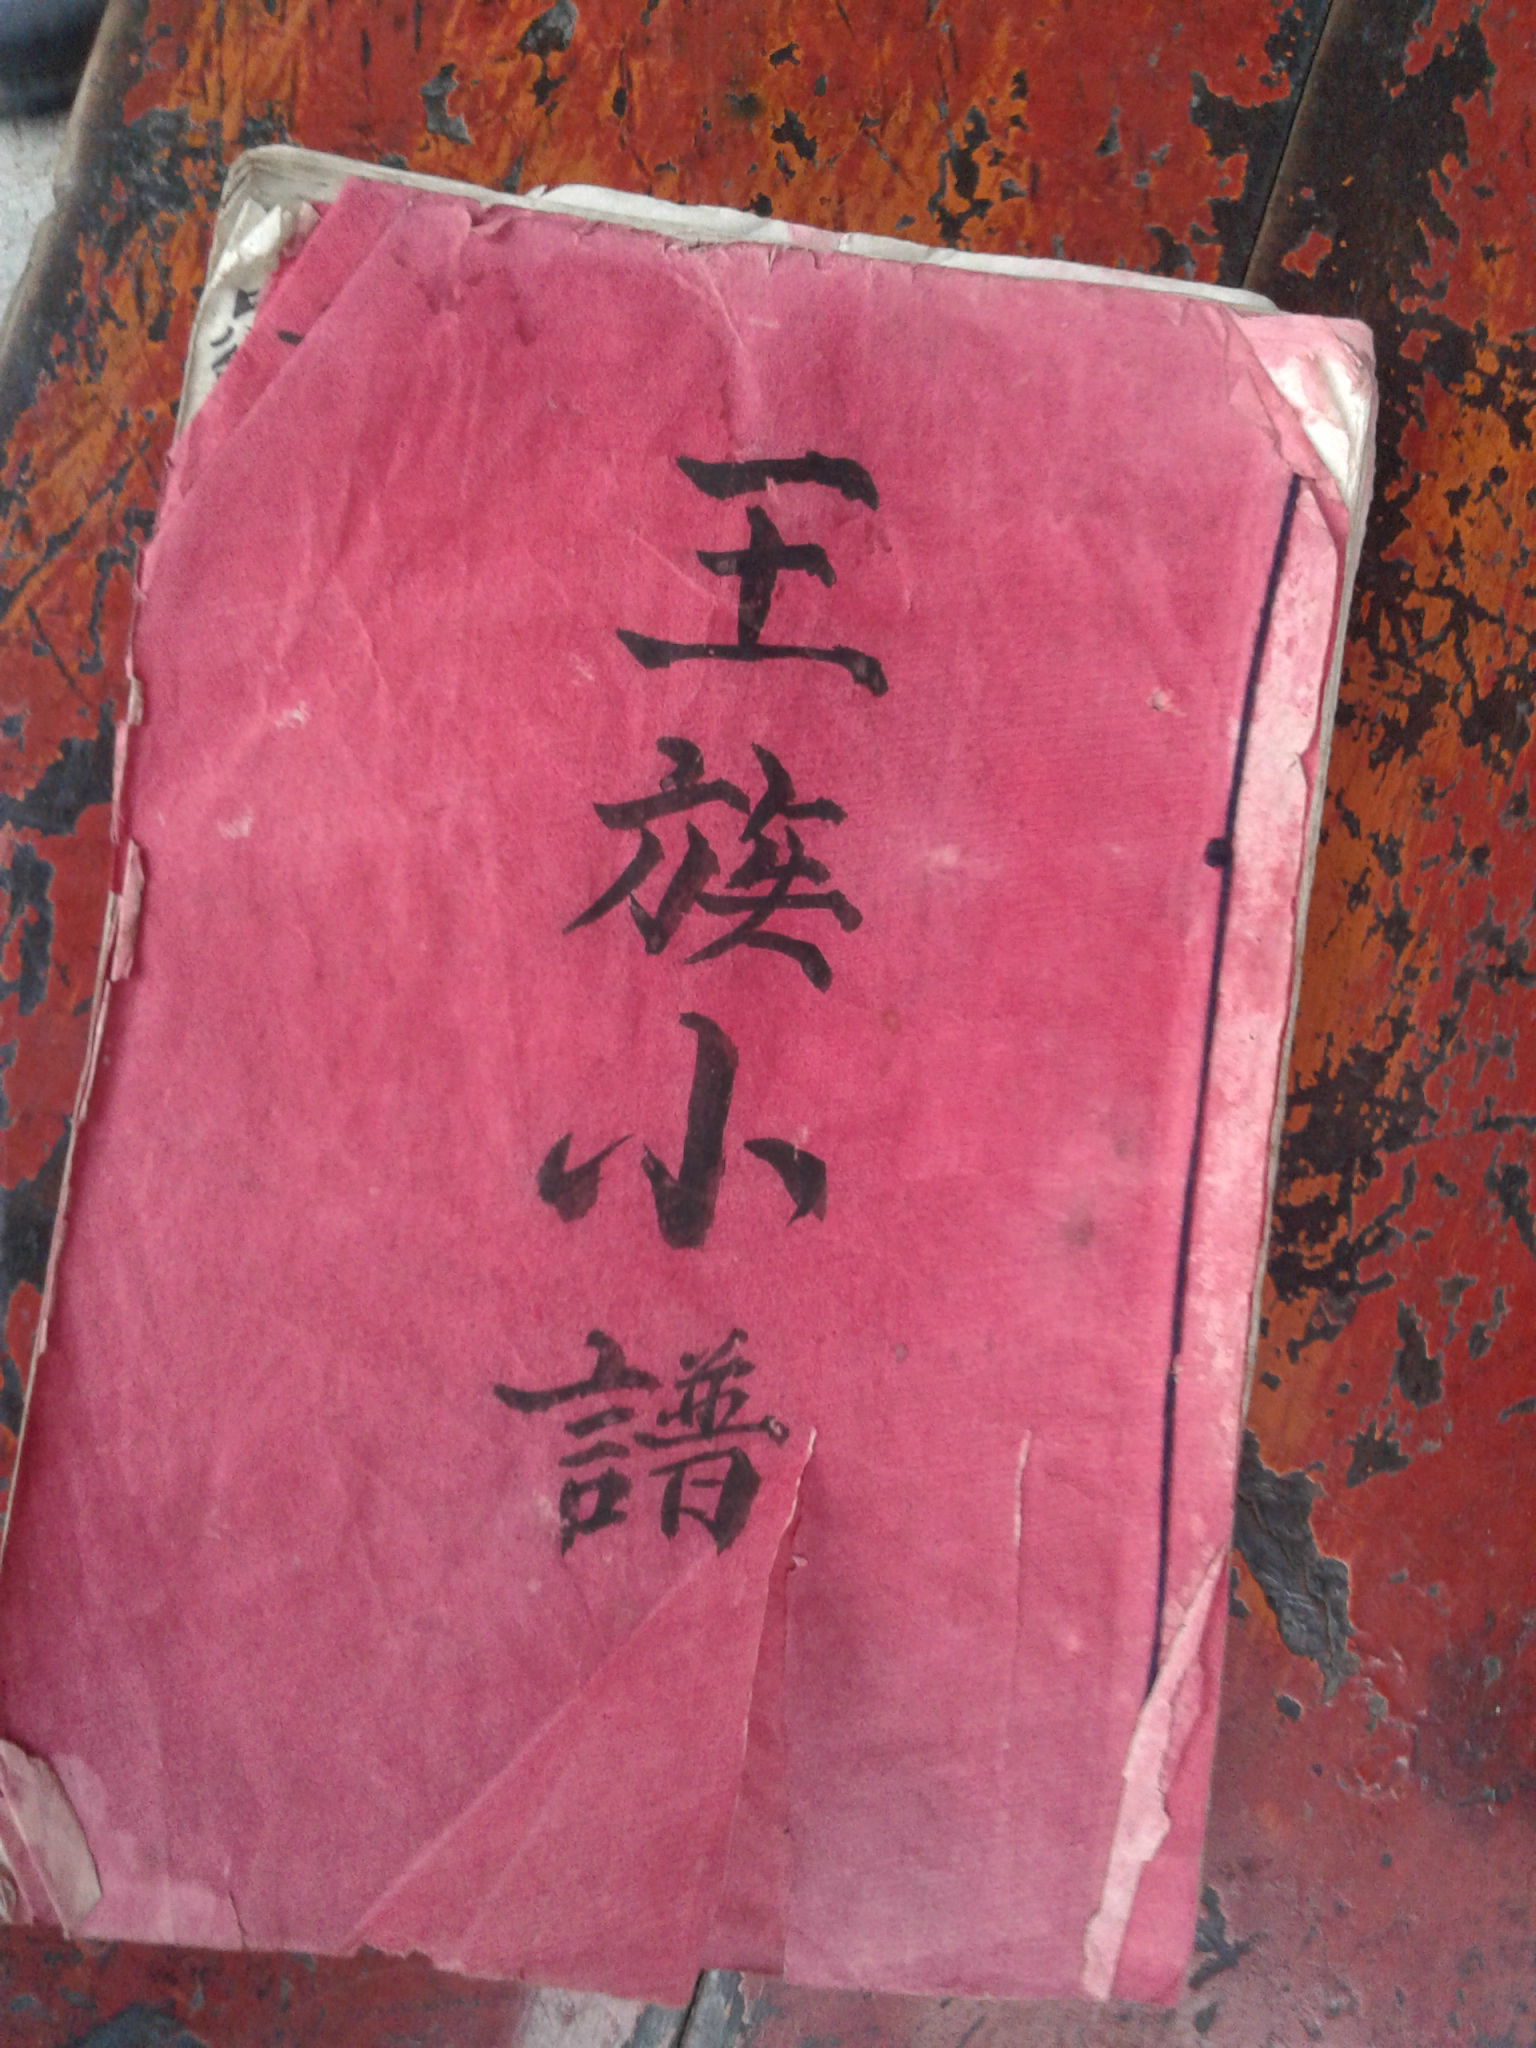 王族小譜